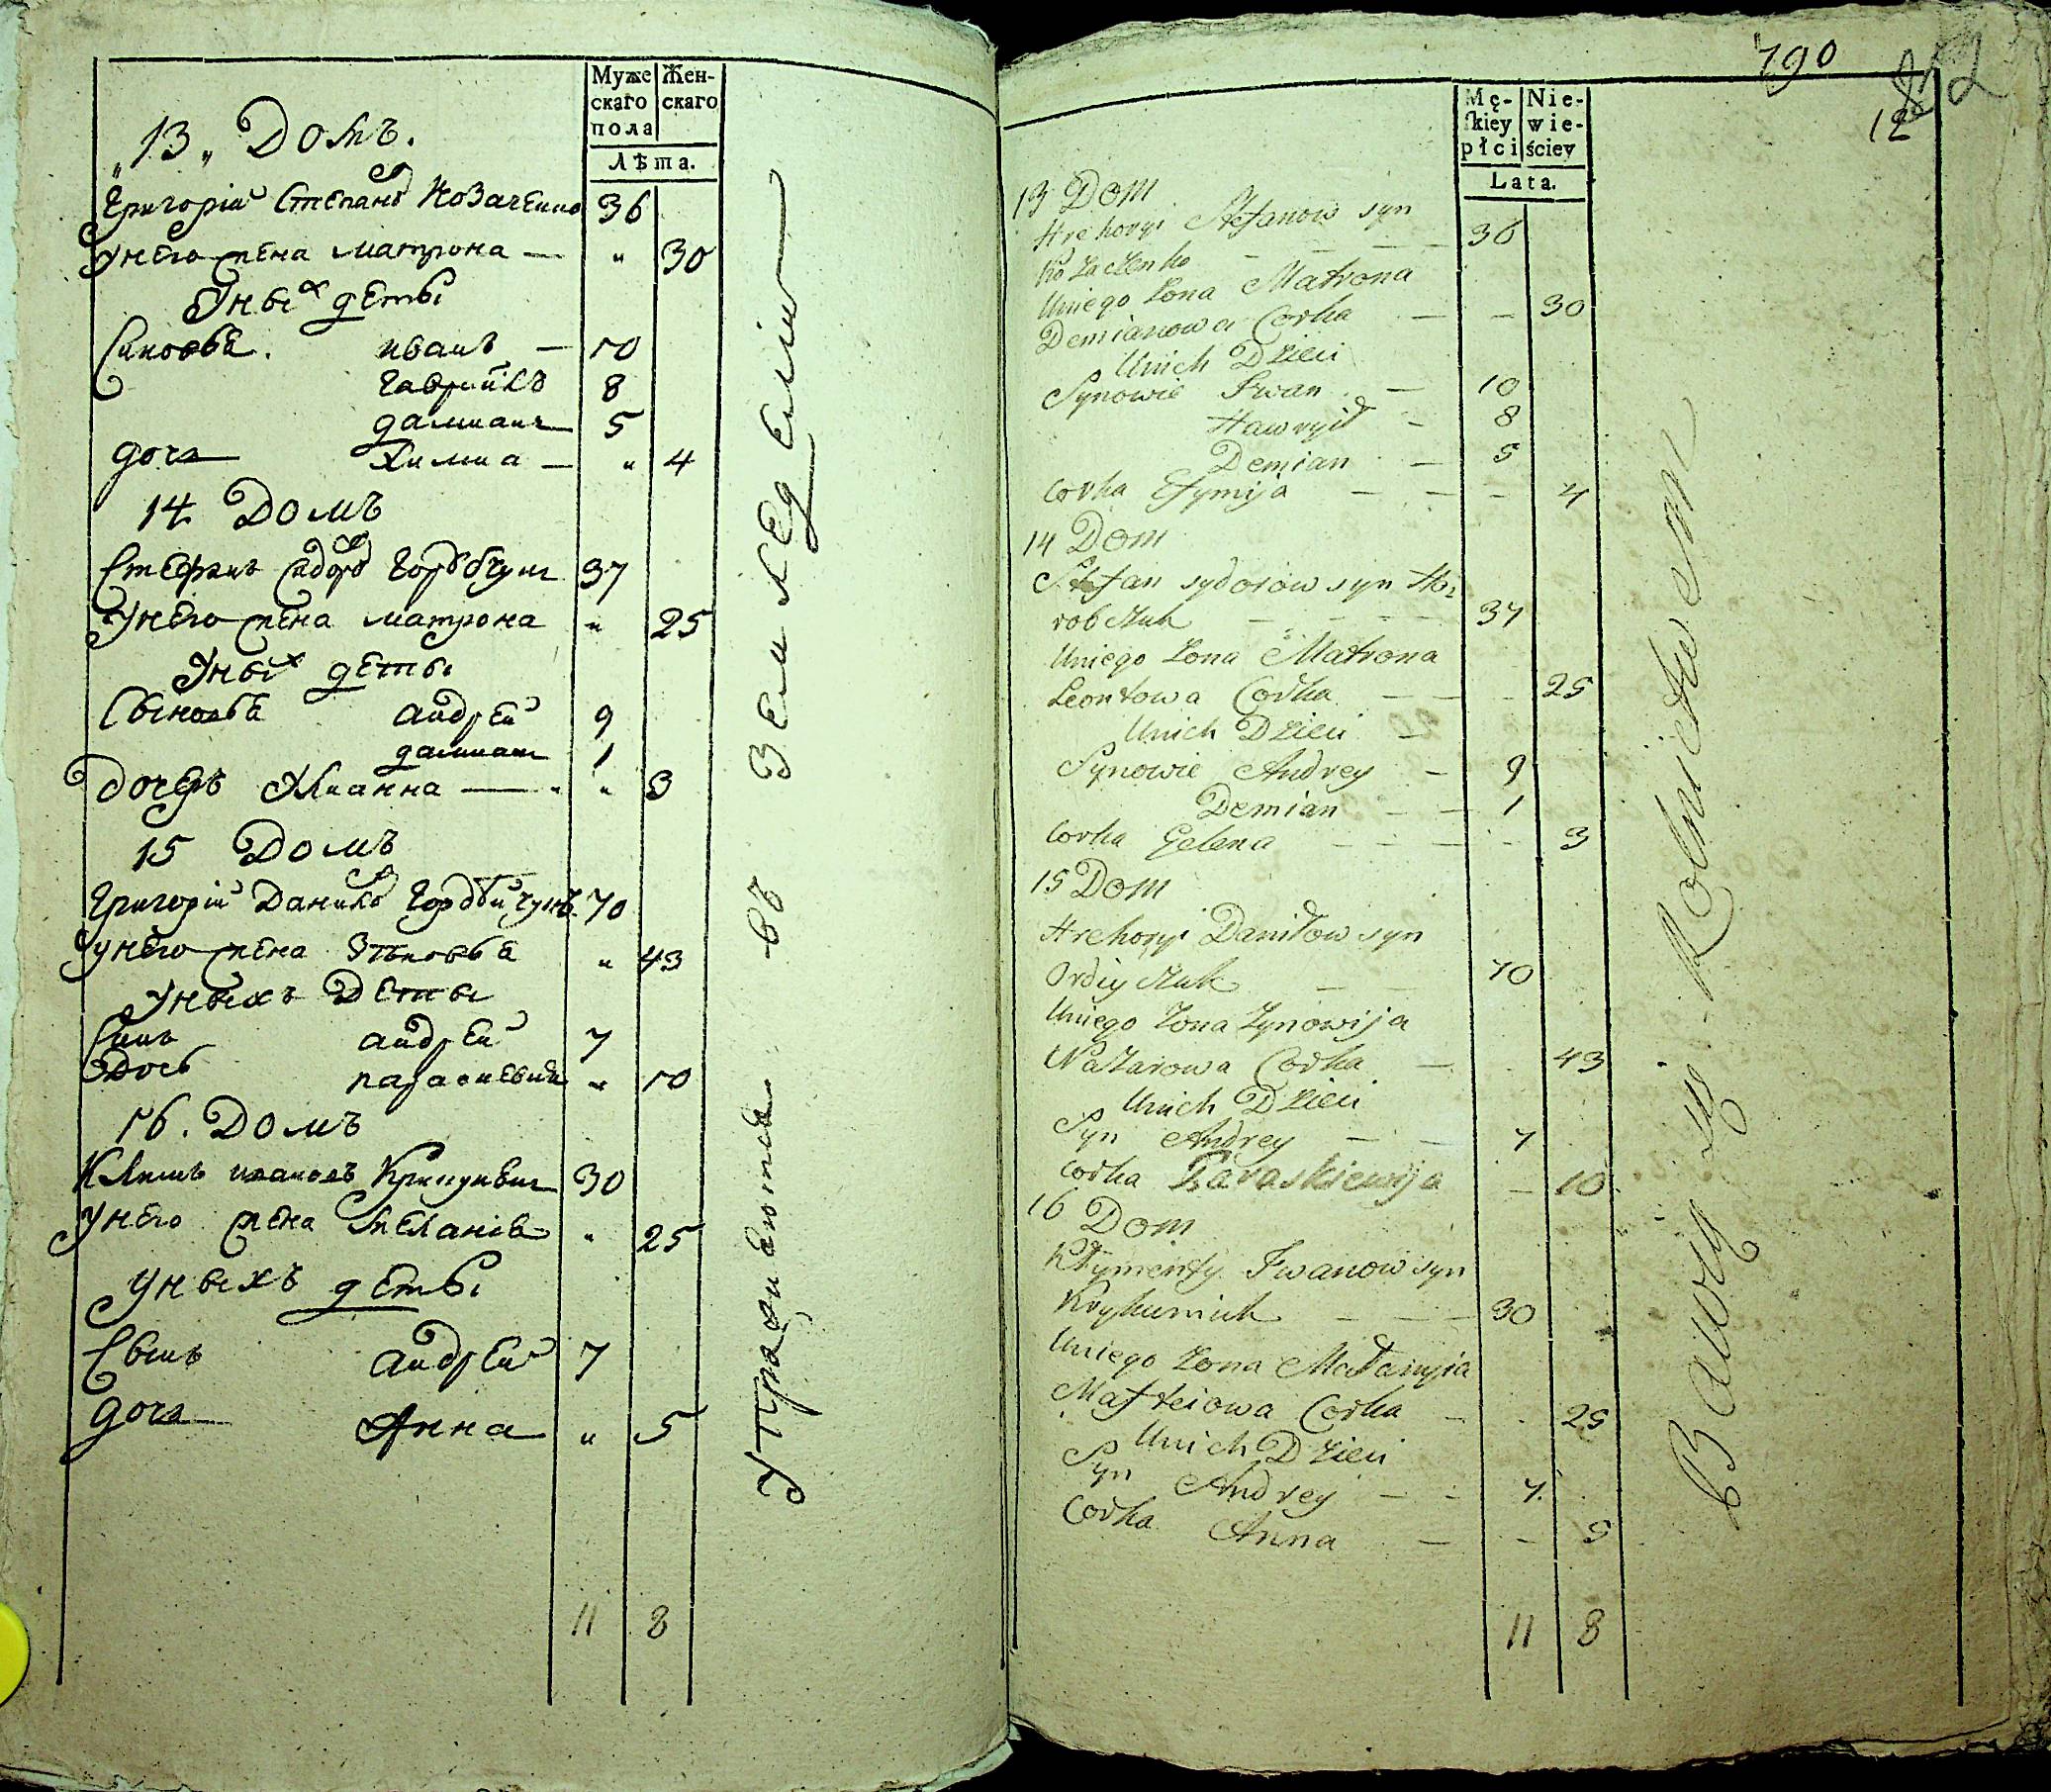 Муже Жен-
скаго скаго
пола
Лѣта.
"13" Домъ.
Григорій Степановъ Козаченко 36
Унего жена матрона — " 30
Уныхъ детьі
Синовьѣ. иванъ — 10
гаврийлъ 8
дамианъ 5
дочь Химиа — " 4
14 Домъ
Стефанъ сидоровъ Горобчукъ 37
Унего жена матрона " 25
Уныхъ детьі
Сыновьѣ андрей 9
дамианъ 1
Дочерь — " 3
15 Домъ
Григорій Данилов 70
Унего жена " 43
Уныхъ Детьі
Синь андрей 7
Дочь параскевия " 10
16. Домъ
Климъ ивановъ 30
Унего жена Мелания " 25
Уныхъ детьі
Сынъ андрей 7
дочь Анна " 5
11 8
Упражняются въ Земледелии
790
12
Mę- Nie-
skiey wie-
płci ściey
Lata.
13 Dom
Hrehoryi Stefanow syn
Kozaczenko — — — 36
Uniego Zona Matrona
Demianowa Corka — — 30
Unich Dzieci
Synowie Iwan — 10
Hawryił — 8
Demian — 5
Corka Efymija — — — 4
14 Dom
Stefan sydorow syn Ho-
robczuk — — — 37
Uniego Zona Matrona
Leontowa Corka — — 25
Unich Dzieci —
Synowie Andrey — 9
Demian — — 1
Corka Gelena — — — 3
15 Dom
Hrehoryi Daniłow syn
Ordiyczuk — — 70
Uniego Zona Zynowija
Nazarowa Corka — 43
Unich Dzieci
Syn Andrey — — 7
Corka Paraskiewija — 10
16 Dom
Kłymenty Iwanow syn
Krykuniuk — — — 30
Uniego Zona Małanyia
Mafteiowa Corka — 25
Unich Dzieci
Syn Andrey — — 7.
Corka Anna — — 5
11 8
Bawią się Rolnictwem